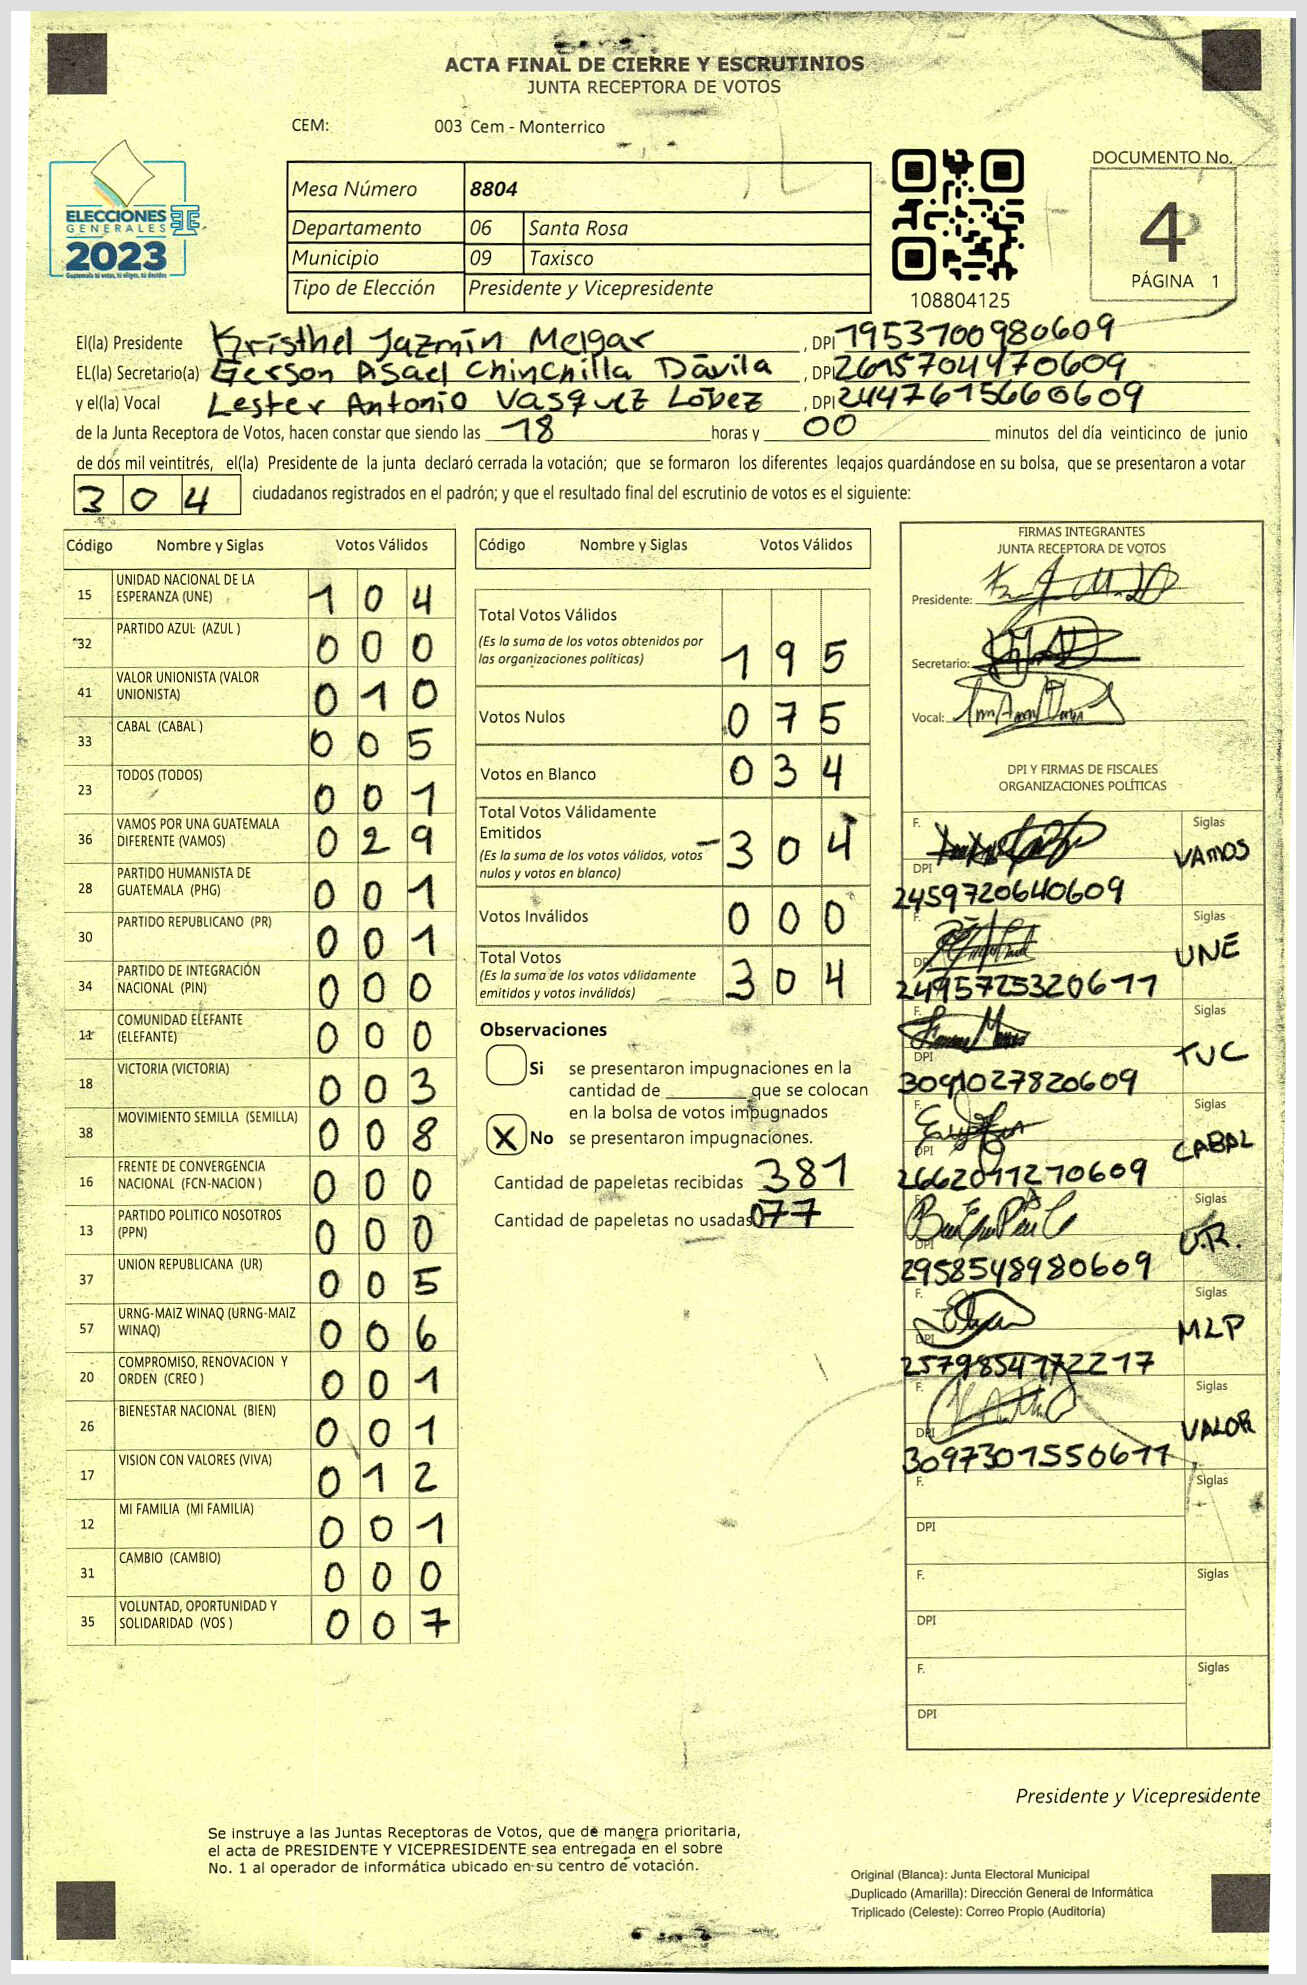 ACTA FINAL DE CIERRE Y ESCRUTINIOS
JUNTA RECEPTORA DE VOTOS
CEM: 003 Cem - Monterrico
ELECCIONES
GENERALES
2023
Guatemala tú votas, tú eliges, tú decides
Mesa Número 8804
Departamento 06 Santa Rosa
Municipio 09 Taxisco
Tipo de Elección Presidente y Vicepresidente
108804125
DOCUMENTO No.
4
PÁGINA 1
El(la) Presidente Kristhel Jazmín Melgar, DPI 1953700980609
EL(la) Secretario(a) Gerson Asael Chinchilla Dávila, DPI 2615704470609
y el(la) Vocal Lester Antonio Vasquez López, DPI 2447615660609
de la Junta Receptora de Votos, hacen constar que siendo las 18 horas y 00 minutos del día veinticinco de junio
de dos mil veintitrés, el(la) Presidente de la junta declaró cerrada la votación; que se formaron los diferentes legajos quardándose en su bolsa, que se presentaron a votar
304 ciudadanos registrados en el padrón; y que el resultado final del escrutinio de votos es el siguiente:
Código Nombre y Siglas Votos Válidos
15 UNIDAD NACIONAL DE LA
ESPERANZA (UNE) 104
32 PARTIDO AZUL (AZUL ) 000
41 VALOR UNIONISTA (VALOR
UNIONISTA) 010
33 CABAL (CABAL ) 005
23 TODOS (TODOS) 001
36 VAMOS POR UNA GUATEMALA
DIFERENTE (VAMOS) 029
28 PARTIDO HUMANISTA DE
GUATEMALA (PHG) 001
30 PARTIDO REPUBLICANO (PR) 001
34 PARTIDO DE INTEGRACIÓN
NACIONAL (PIN) 000
11 COMUNIDAD ELEFANTE
(ELEFANTE) 000
18 VICTORIA (VICTORIA) 003
38 MOVIMIENTO SEMILLA (SEMILLA) 008
16 FRENTE DE CONVERGENCIA
NACIONAL (FCN-NACION ) 000
13 PARTIDO POLITICO NOSOTROS
(PPN) 000
37 UNION REPUBLICANA (UR) 005
57 URNG-MAIZ WINAQ (URNG-MAIZ
WINAQ) 006
20 COMPROMISO, RENOVACION Y
ORDEN (CREO ) 001
26 BIENESTAR NACIONAL (BIEN) 001
17 VISION CON VALORES (VIVA) 012
12 MI FAMILIA (MI FAMILIA) 001
31 CAMBIO (CAMBIO) 000
35 VOLUNTAD, OPORTUNIDAD Y
SOLIDARIDAD (VOS ) 007
Código Nombre y Siglas Votos Válidos
Total Votos Válidos
(Es la suma de los votos obtenidos por
las organizaciones políticas) 195
Votos Nulos 075
Votos en Blanco 034
Total Votos Válidamente
Emitidos
(Es la suma de los votos válidos, votos
nulos y votos en blanco) 304
Votos Inválidos 000
Total Votos
(Es la suma de los votos válidamente
emitidos y votos inválidos) 304
Observaciones
Si se presentaron impugnaciones en la
cantidad de ________ que se colocan
en la bolsa de votos impugnados
X No se presentaron impugnaciones.
Cantidad de papeletas recibidas 381
Cantidad de papeletas no usadas 077
FIRMAS INTEGRANTES
JUNTA RECEPTORA DE VOTOS
Presidente:
Secretario:
Vocal:
DPI Y FIRMAS DE FISCALES
ORGANIZACIONES POLÍTICAS
F. Siglas VAMOS
DPI 2459720640609
F. Siglas UNE
DPI 2495725320611
F. Siglas TUC
DPI 3091027820609
F. Siglas CABAL
DPI 2662011270609
F. Siglas U.R.
DPI 2958548980609
F. Siglas MLP
DPI 2579854172217
F. Siglas VALOR
DPI 3097301550611
F. Siglas
DPI
F. Siglas
DPI
F. Siglas
DPI
Presidente y Vicepresidente
Se instruye a las Juntas Receptoras de Votos, que de manera prioritaria,
el acta de PRESIDENTE Y VICEPRESIDENTE sea entregada en el sobre
No. 1 al operador de informática ubicado en su centro de votación.
Original (Blanca): Junta Electoral Municipal
Duplicado (Amarilla): Dirección General de Informática
Triplicado (Celeste): Correo Propio (Auditoría)